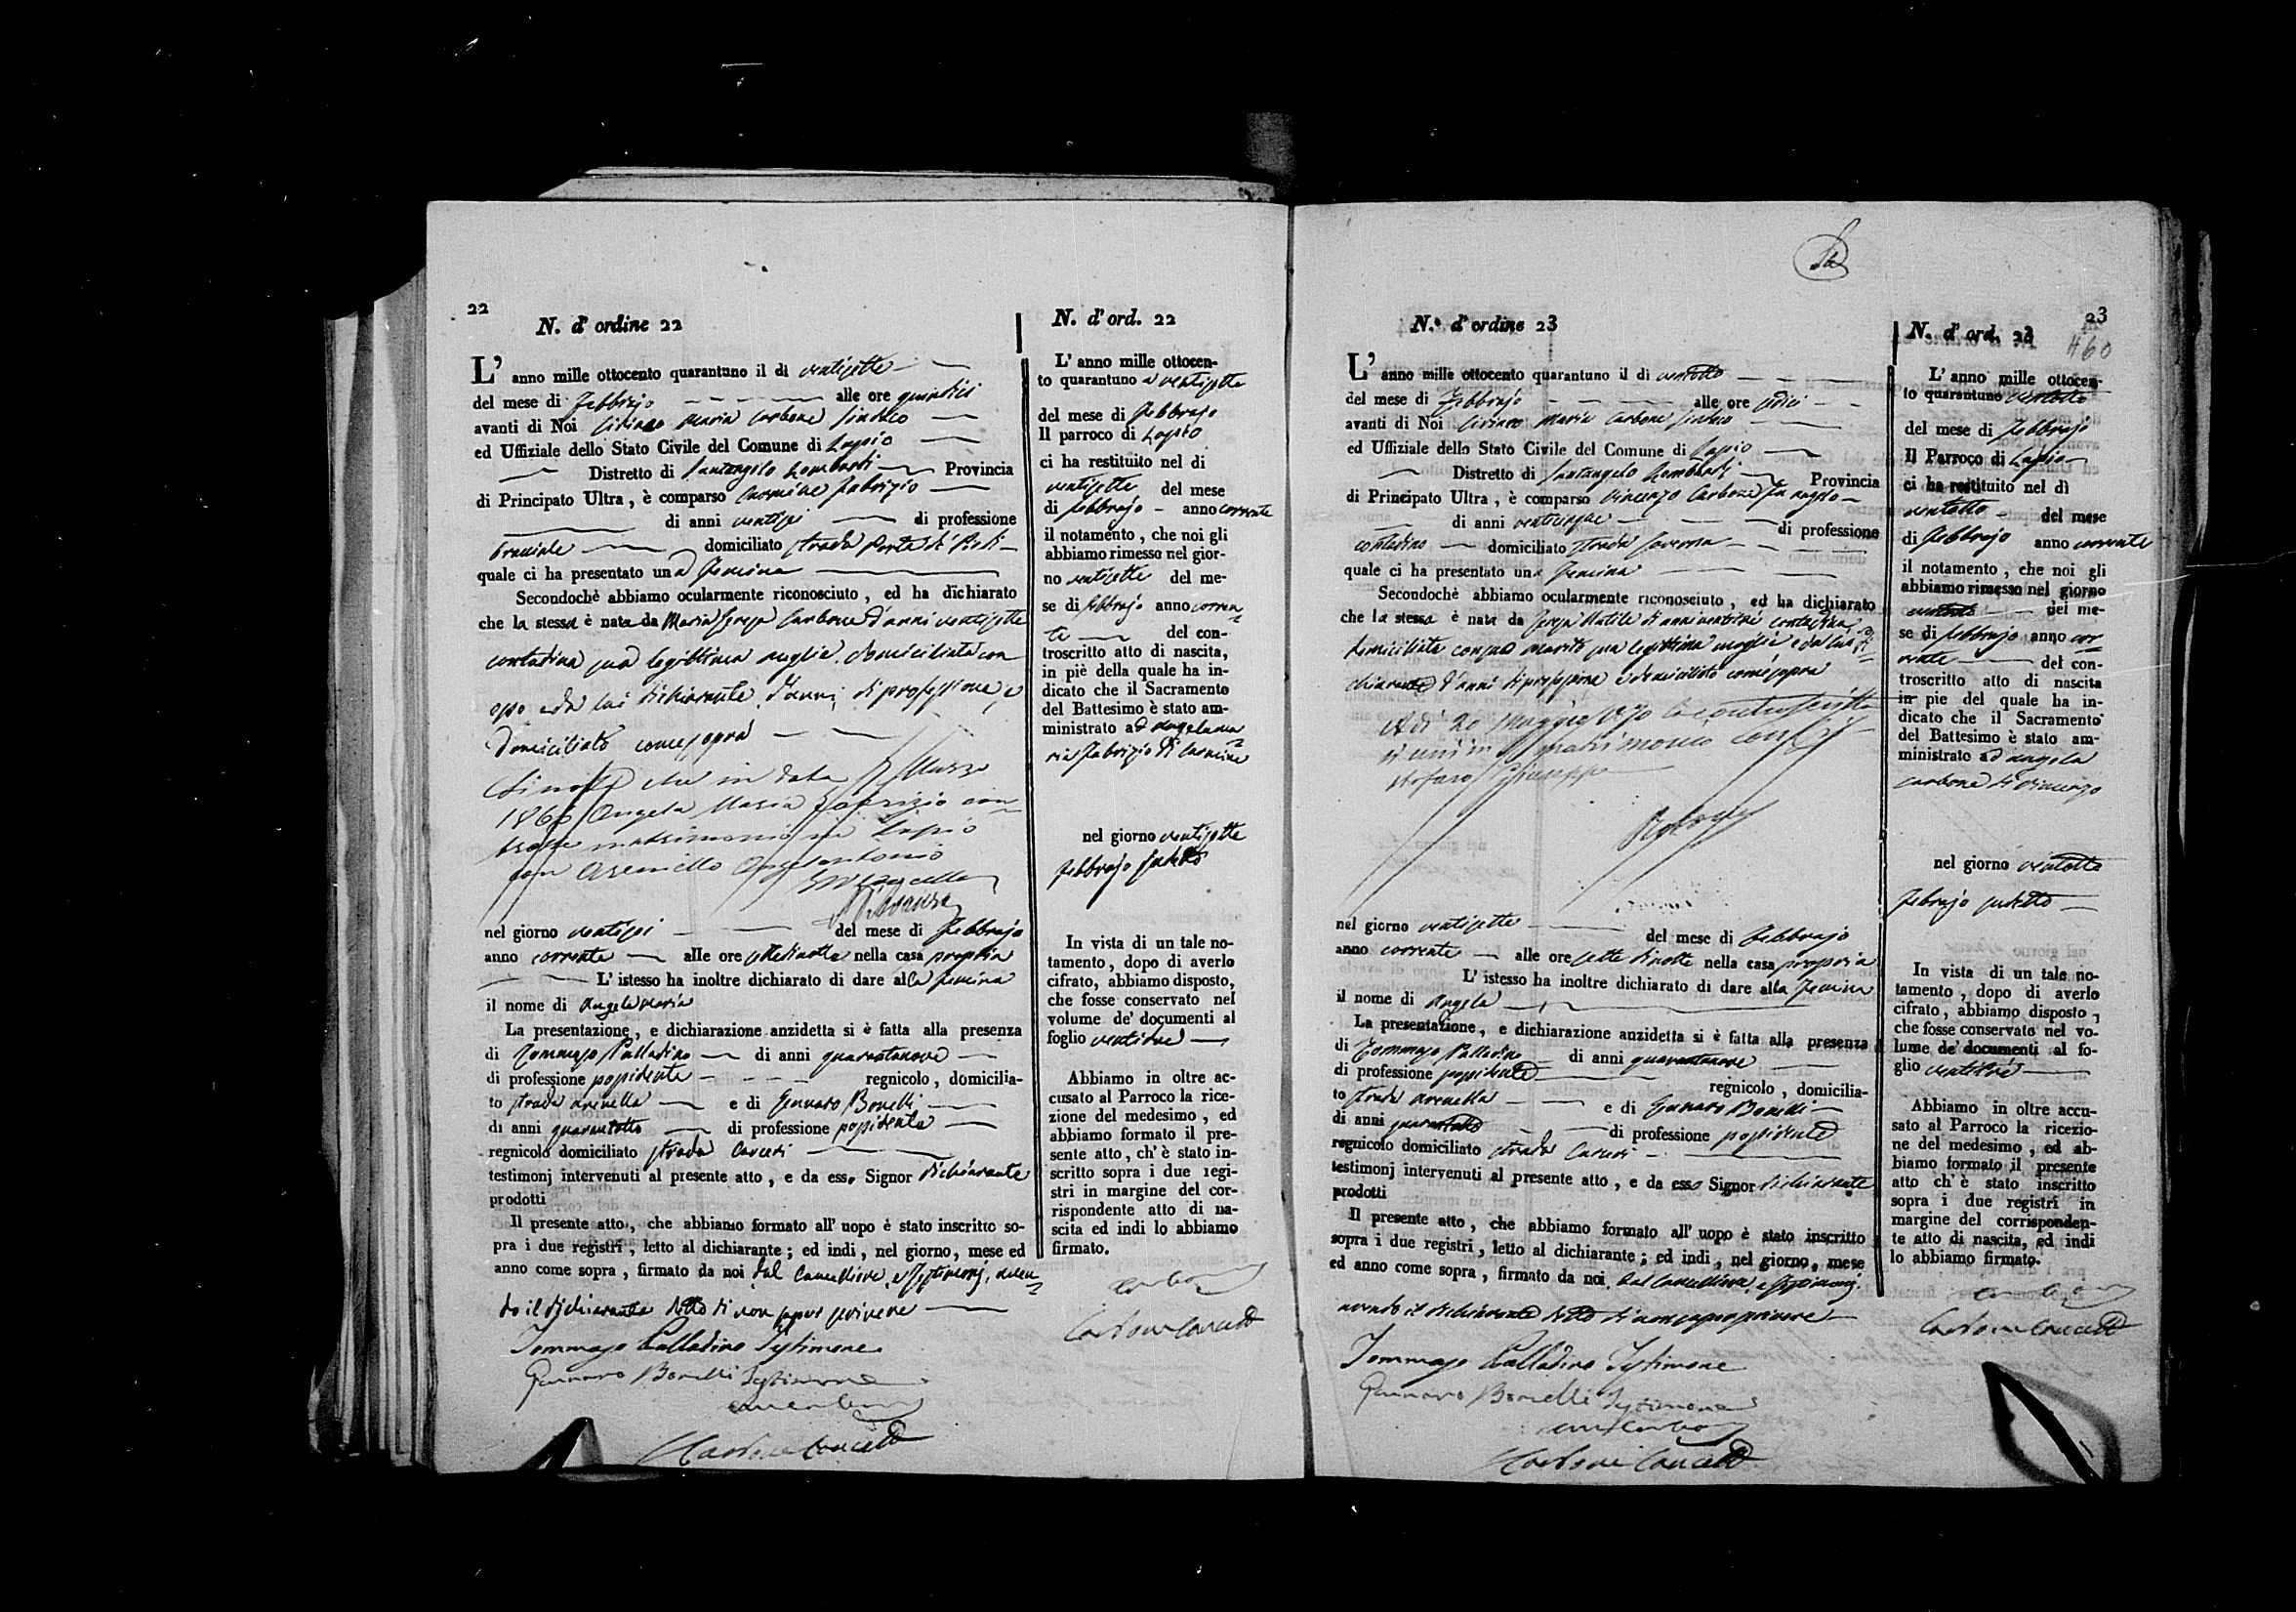 22
N. d' ordine 22
L' anno mille ottocento quarantuno il di ventisette
del mese di Febbrajo alle ore quindici
avanti di Noi Ciriaco Maria Carbone Sindaco
ed Uffiziale dello Stato Civile del Comune di Lapio
Distretto di Santangelo Lombardi Provincia
di Principato Ultra, è comparso Carmine Fabrizio
di anni ventisei di professione
bracciale domiciliato strada Porta di
quale ci ha presentato una Femina
Secondochè abbiamo ocularmente riconosciuto, ed ha dichiarato
che la stessa è nata da Maria Carbone d'anni ventisette
contadina sua legittima moglie domiciliata con
esso e da lui dichiarante d'anni, di professione, e
domiciliato come sopra
Si nota che in data Marzo
1866 Angela Maria Fabrizio con-
trasse matrimonio in Lapio
con Angelantonio
nel giorno ventisei del mese di Febbrajo
anno corrente alle ore sette di notte nella casa propria
L' istesso ha inoltre dichiarato di dare alla femina
il nome di Angelamaria
La presentazione, e dichiarazione anzidetta si è fatta alla presenza
di Tommaso Palladino di anni quarantanove
di professione possidente regnicolo, domicilia-
to strada arenella e di Gennaro Bonelli
di anni quarantotto di professione possidente
regnicolo domiciliato strada Carceri
testimonj intervenuti al presente atto, e da esso Signor dichiarante
prodotti
Il presente atto, che abbiamo formato all' uopo è stato inscritto so-
pra i due registri, letto al dichiarante; ed indi, nel giorno, mese ed
anno come sopra, firmato da noi dal Cancelliere, e testimonj, aven-
do il dichiarante detto di non saper scrivere
Tommaso Palladino Testimone
Gennaro Bonelli Testimone
N. d' ord. 22
L' anno mille ottocen-
to quarantuno a ventisette
del mese di Febbrajo
Il parroco di Lapio
ci ha restituito nel di
ventisette del mese
di febbrajo anno corrente
il notamento, che noi gli
abbiamo rimesso nel gior-
no ventisette del me-
se di febbrajo anno corren
te del con-
troscritto atto di nascita,
in piè della quale ha in-
dicato che il Sacramento
del Battesimo è stato am-
ministrato ad Angelama
ria Fabrizio di Carmine
nel giorno ventisette
febbrajo sudetto
In vista di un tale no-
tamento, dopo di averlo
cifrato, abbiamo disposto,
che fosse conservato nel
volume de' documenti al
foglio ventidue
Abbiamo in oltre ac-
cusato al Parroco la rice-
zione del medesimo, ed
abbiamo formato il pre-
sente atto, ch' è stato in-
scritto sopra i due regi-
stri in margine del cor-
rispondente atto di na-
scita ed indi lo abbiamo
firmato.
23
460
N.° d' ordine 23
L' anno mille ottocento quarantuno il di ventotto
del mese di Febbrajo alle ore sedici
avanti di Noi Ciriaco Maria Carbone Sindaco
ed Uffiziale dello Stato Civile del Comune di Lapio
Distretto di Santangelo Lombardi Provincia
di Principato Ultra, è comparso Vincenzo Carbone fu angelo
di anni venticinque di professione
contadino domiciliato strada
quale ci ha presentato una Femina
Secondochè abbiamo ocularmente riconosciuto, ed ha dichiarato
che la stessa è nata da di anni ventitrè contadina
domiciliata con suo marito sua legittima moglie e da lui di-
chiarante d'anni di professione e domiciliato come sopra
A di 20 Maggio la controscritta
si unì in matrimonio con
Giuseppe
nel giorno ventisette del mese di Febbrajo
anno corrente alle ore sette di notte nella casa propria
L' istesso ha inoltre dichiarato di dare alla Femina
il nome di Angela
La presentazione, e dichiarazione anzidetta si è fatta alla presenza
di Tommaso Palladino di anni quarantanove
di professione possidente regnicolo, domicilia-
to strada arenella e di Gennaro Bonelli
di anni quarantotto di professione possidente
regnicolo domiciliato strada Carceri
testimonj intervenuti al presente atto, e da esso Signor dichiarante
prodotti
Il presente atto, che abbiamo formato all' uopo è stato inscritto
sopra i due registri, letto al dichiarante; ed indi, nel giorno, mese
ed anno come sopra, firmato da noi dal Cancelliere, e testimonj,
avendo il dichiarante detto di non saper scrivere
Tommaso Palladino Testimone
Gennaro Bonelli Testimone
N. d' ord. 23
L' anno mille ottocen-
to quarantuno ventotto
del mese di Febbrajo
Il Parroco di Lapio
ci ha restituito nel dì
ventotto del mese
di Febbrajo anno corrente
il notamento, che noi gli
abbiamo rimesso nel giorno
ventotto del me-
se di febbrajo anno cor
rente del con-
troscritto atto di nascita
in pie del quale ha in-
dicato che il Sacramento
del Battesimo è stato am-
ministrato ad Angela
Carbone di Vincenzo
nel giorno ventotto
febrajo sudetto
In vista di un tale no-
tamento, dopo di averlo
cifrato, abbiamo disposto,
che fosse conservato nel vo-
lume de' documenti al fo-
glio ventitrè
Abbiamo in oltre accu-
sato al Parroco la ricezio-
ne del medesimo, ed ab-
biamo formato il presente
atto ch' è stato inscritto
sopra i due registri in
margine del corrisponden-
te atto di nascita, ed indi
lo abbiamo firmato.